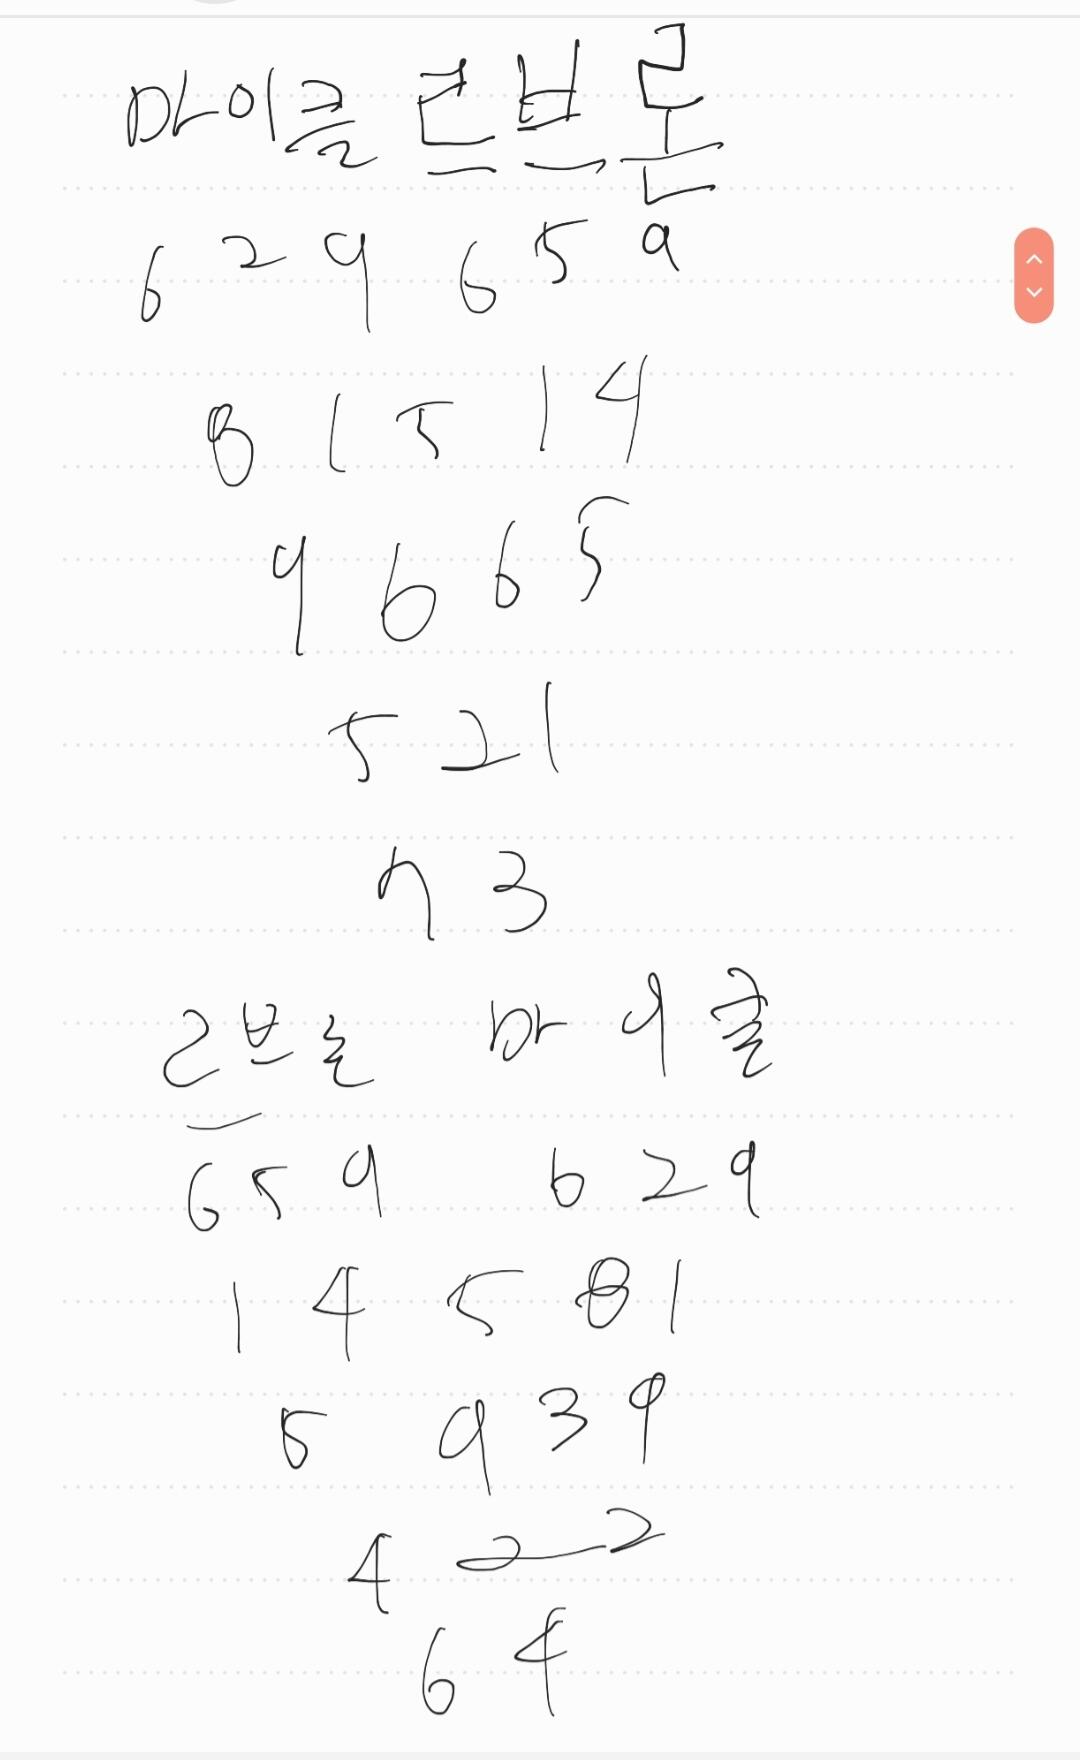 마이클 르브론
6 2 9 6 5 9
8 1 5 1 4
9 6 6 5
5 2 1
7 3
르브론 마이클
6 5 9 6 2 9
1 4 5 8 1
5 9 3 9
4 2 2
6 4